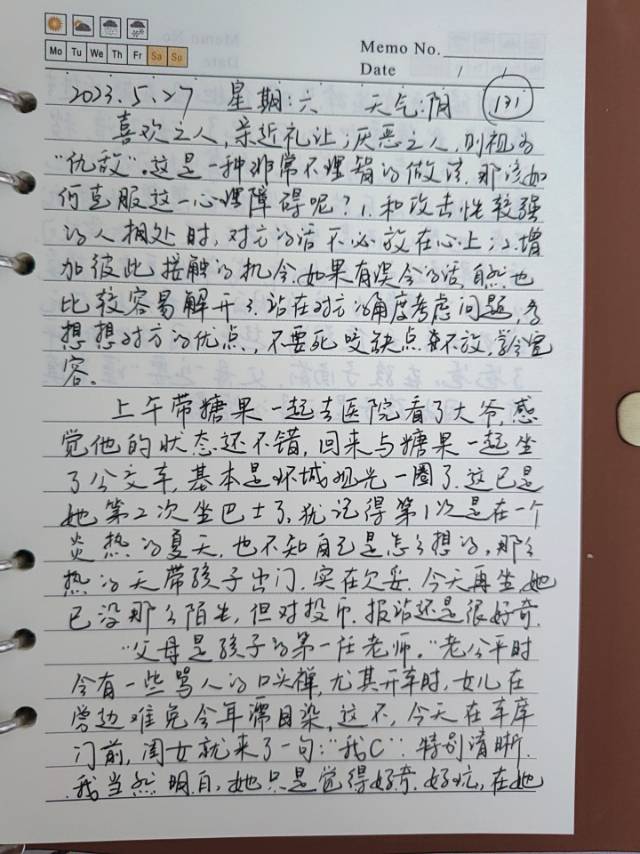 Memo No.
Mo Tu We Th Fr Sa Su
Date /
2023.5.27 星期:六 天气:阴 131
喜欢之人,亲近礼让;厌恶之人,则视为
“仇敌”。这是一种非常不理智的做法.那该如
何克服这一心理障碍呢?1.和攻击性较强
的人相处时,对方的话不必放在心上;2.增
加彼此接触的机会.如果有误会的话,自然也
比较容易解开3.站在对方的角度考虑问题,多
想想对方的优点,不要死咬缺点不放,学会宽
容。
上午带糖果一起去医院看了大爷,感
觉他的状态还不错,回来与糖果一起坐
了公交车,基本是环城观光一圈了.这已是
她第2次坐巴士了,犹记得第1次是在一个
炎热的夏天,也不知自己是怎么想的,那么
热的天带孩子出门.实在欠妥.今天再坐,她
已没那么陌生,但对投币.报站还是很好奇.
“父母是孩子的第一任老师。”老公平时
会有一些骂人的口头禅,尤其开车时,女儿在
旁边难免会耳濡目染,这不,今天在车库
门前,闺女就来了一句:“我C”.特别清晰.
我当然明白,她只是觉得好奇.好玩,在她